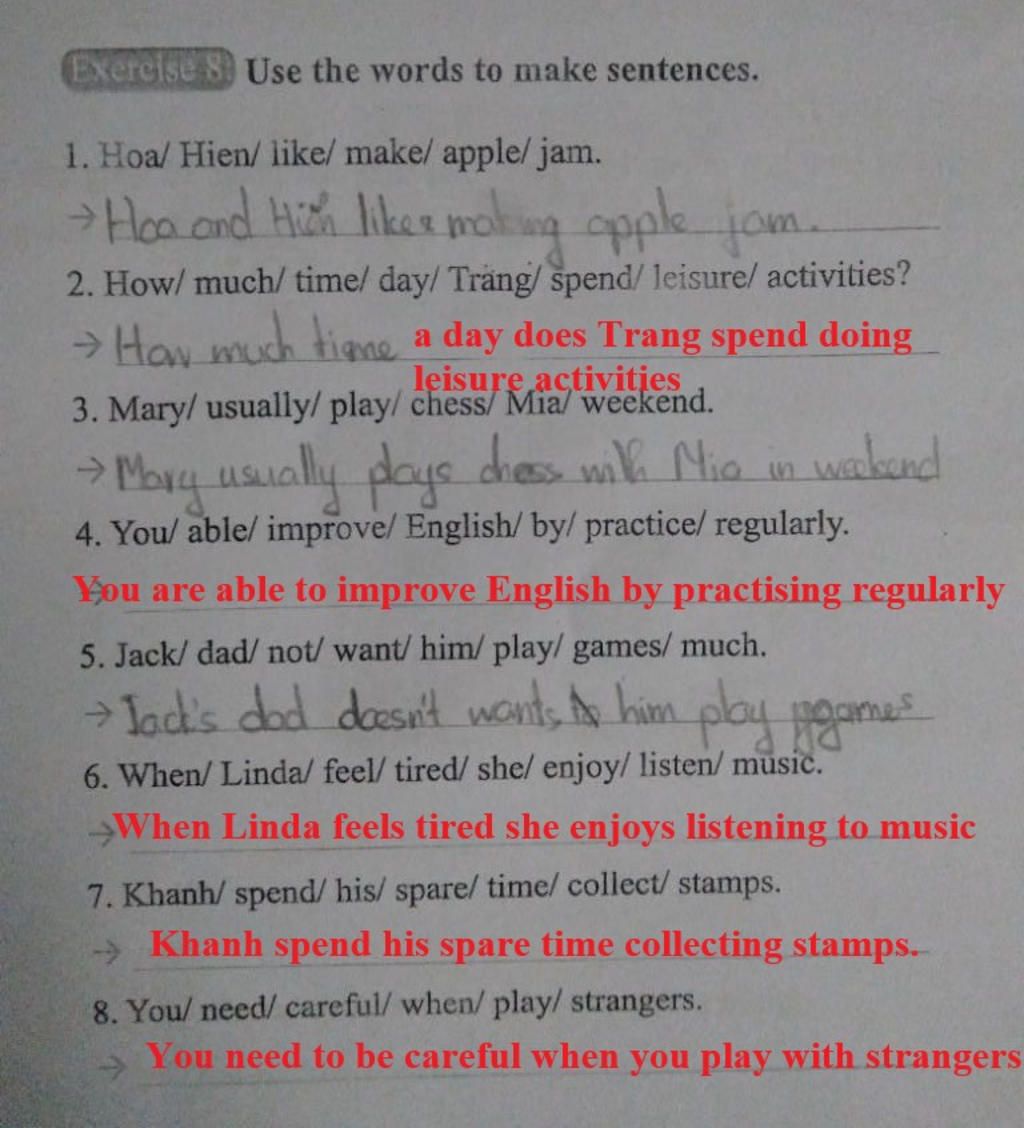 Exercise 8: Use the words to make sentences.
1. Hoa/ Hien/ like/ make/ apple/ jam.
→ Hoa and Hiền likes making apple jam.
2. How/ much/ time/ day/ Trang/ spend/ leisure/ activities?
→ How much time a day does Trang spend doing
leisure activities
3. Mary/ usually/ play/ chess/ Mia/ weekend.
→ Mary usually plays chess with Mia in weekend
4. You/ able/ improve/ English/ by/ practice/ regularly.
You are able to improve English by practising regularly
5. Jack/ dad/ not/ want/ him/ play/ games/ much.
→ Jack's dad doesn't wants him play games
6. When/ Linda/ feel/ tired/ she/ enjoy/ listen/ music.
→ When Linda feels tired she enjoys listening to music
7. Khanh/ spend/ his/ spare/ time/ collect/ stamps.
→ Khanh spend his spare time collecting stamps.
8. You/ need/ careful/ when/ play/ strangers.
→ You need to be careful when you play with strangers